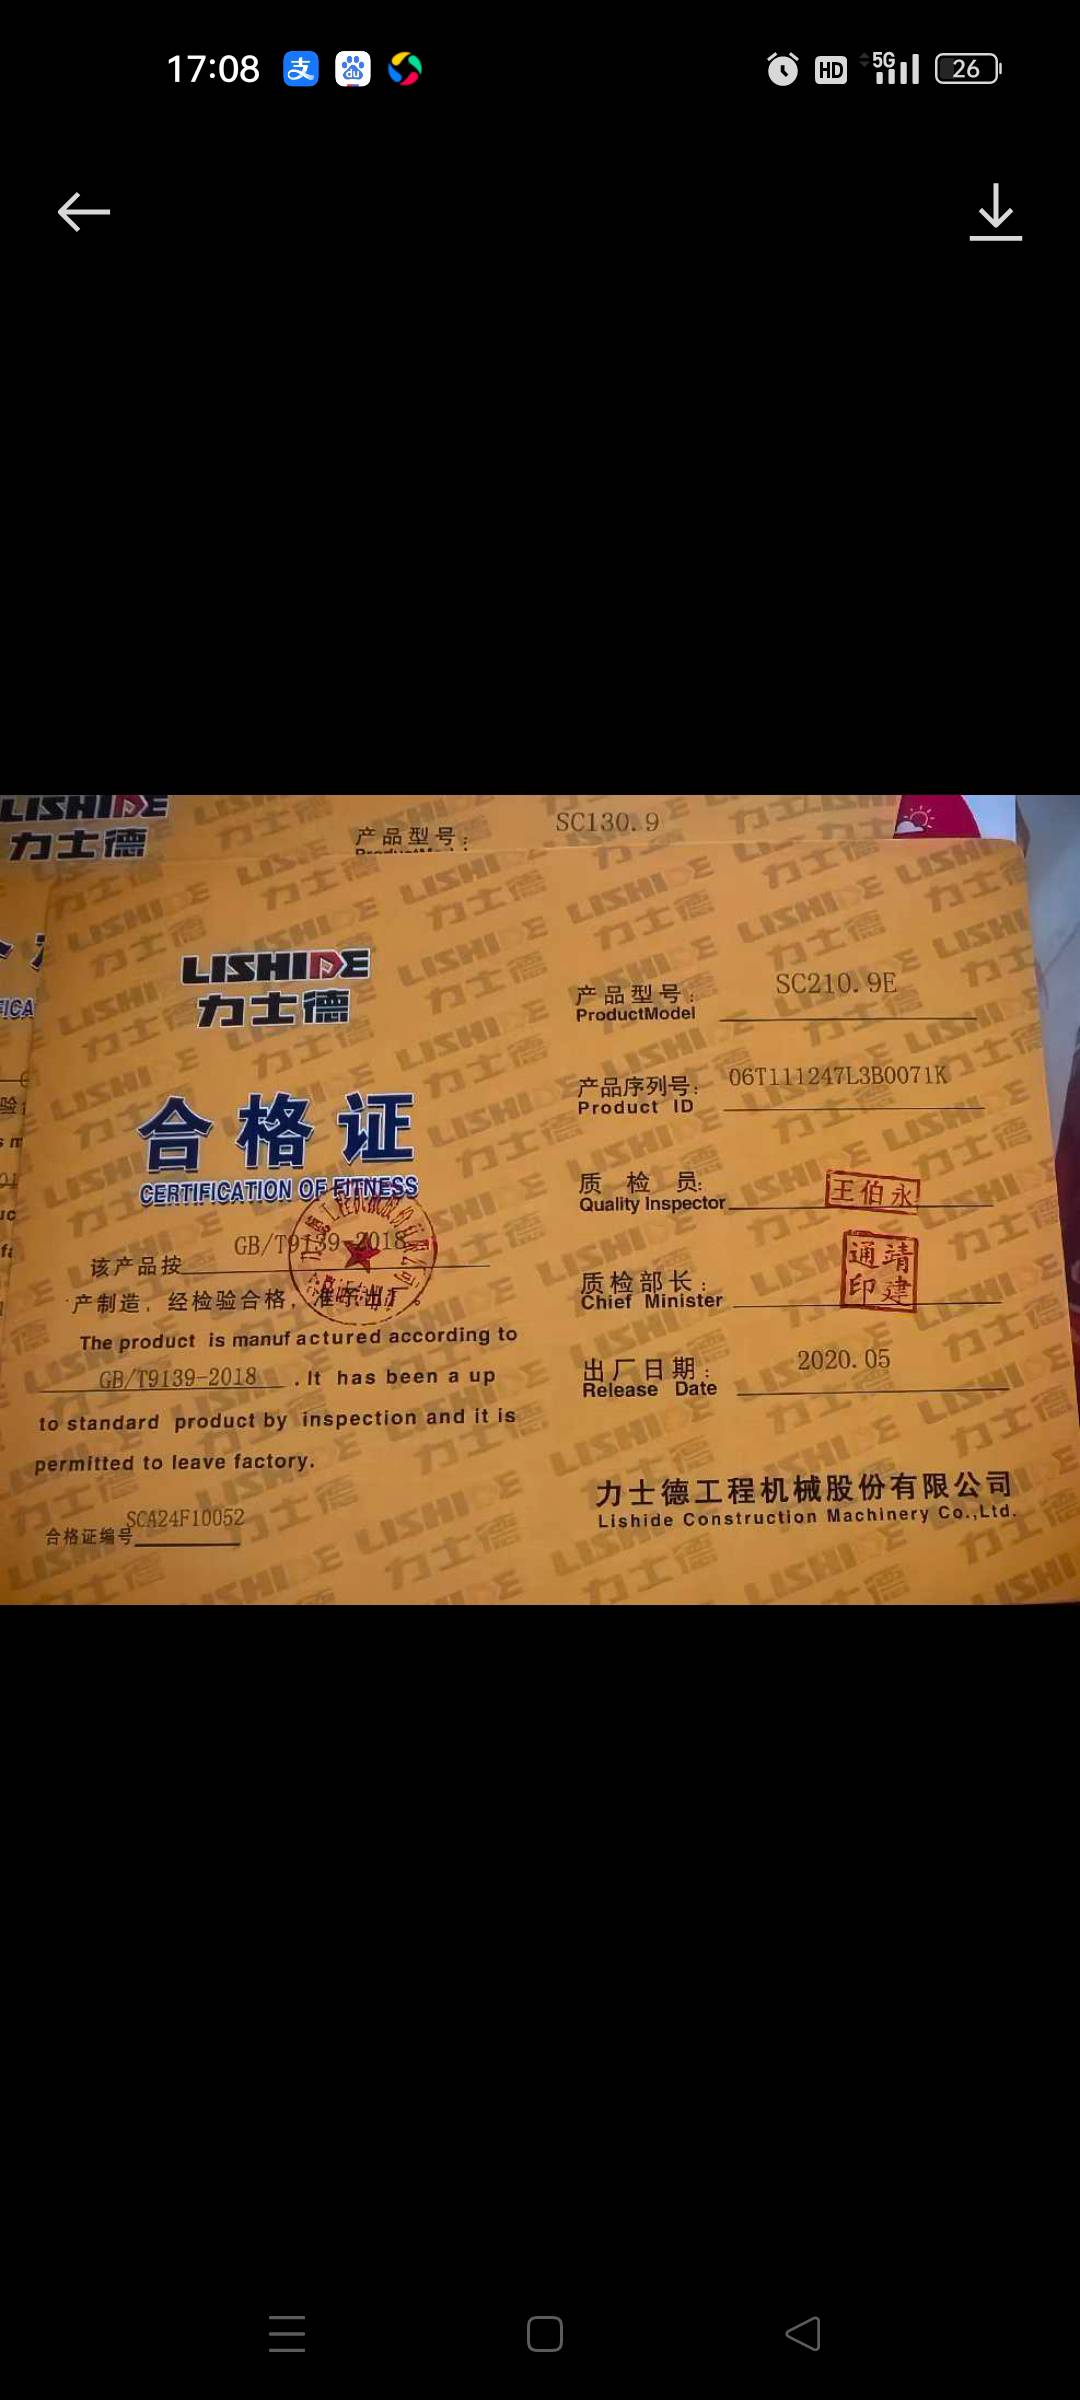 17:08
支
du
HD
5G
26
LISHIDE
力士德
产品型号：
SC130.9
FICA
LISHIDE
力士德
合格证
CERTIFICATION OF FITNESS
该产品按 GB/T9139-2018
产制造，经检验合格，准予出厂。
The product is manufactured according to
GB/T9139-2018 . It has been a up
to standard product by inspection and it is
permitted to leave factory.
合格证编号 SCA24F10052
产品型号： SC210.9E
ProductModel
产品序列号： 06T111247L3B0071K
Product ID
质检员： 王伯永
Quality Inspector
质检部长： 靖建通印
Chief Minister
出厂日期： 2020.05
Release Date
力士德工程机械股份有限公司
Lishide Construction Machinery Co.,Ltd.